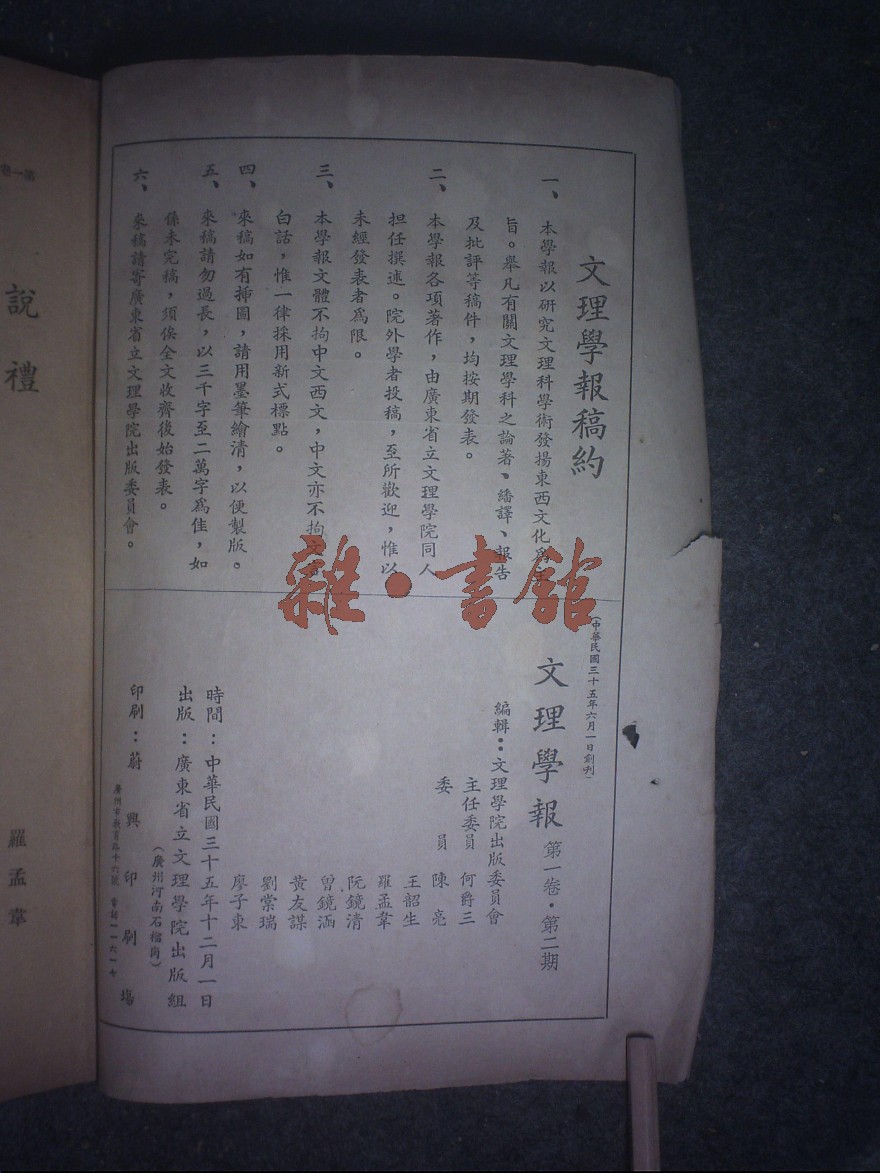 文理學報稿約
一、本學報以研究文理科學術發揚東西文化爲主
旨。舉凡有關文理學科之論著、繙譯、報告
及批評等稿件，均按期發表。
二、本學報各項著作，由廣東省立文理學院同人
担任撰述。院外學者投稿，至所歡迎，惟以
未經發表者爲限。
三、本學報文體不拘中文西文，中文亦不拘文言
白話，惟一律採用新式標點。
四、來稿如有揷圖，請用墨筆繪清，以便製版。
五、來稿請勿過長，以三千字至二萬字爲佳，如
係未完稿，須俟全文收齊後始發表。
六、來稿請寄廣東省立文理學院出版委員會。
（中華民國三十五年六月一日創刊）
文理學報 第一卷・第二期
編輯：文理學院出版委員會
主任委員 何爵三
委員 陳亮
王韶生
羅孟韋
阮鏡清
曾鏡涵
黄友謀
劉棠瑞
廖子東
時間：中華民國三十五年十二月一日
出版：廣東省立文理學院出版組
（廣州河南石榴崗）
印刷：蔚興印刷塲
廣州市教育路十六號 電話一一六一七
第一卷
說禮
羅孟韋
雜・書館